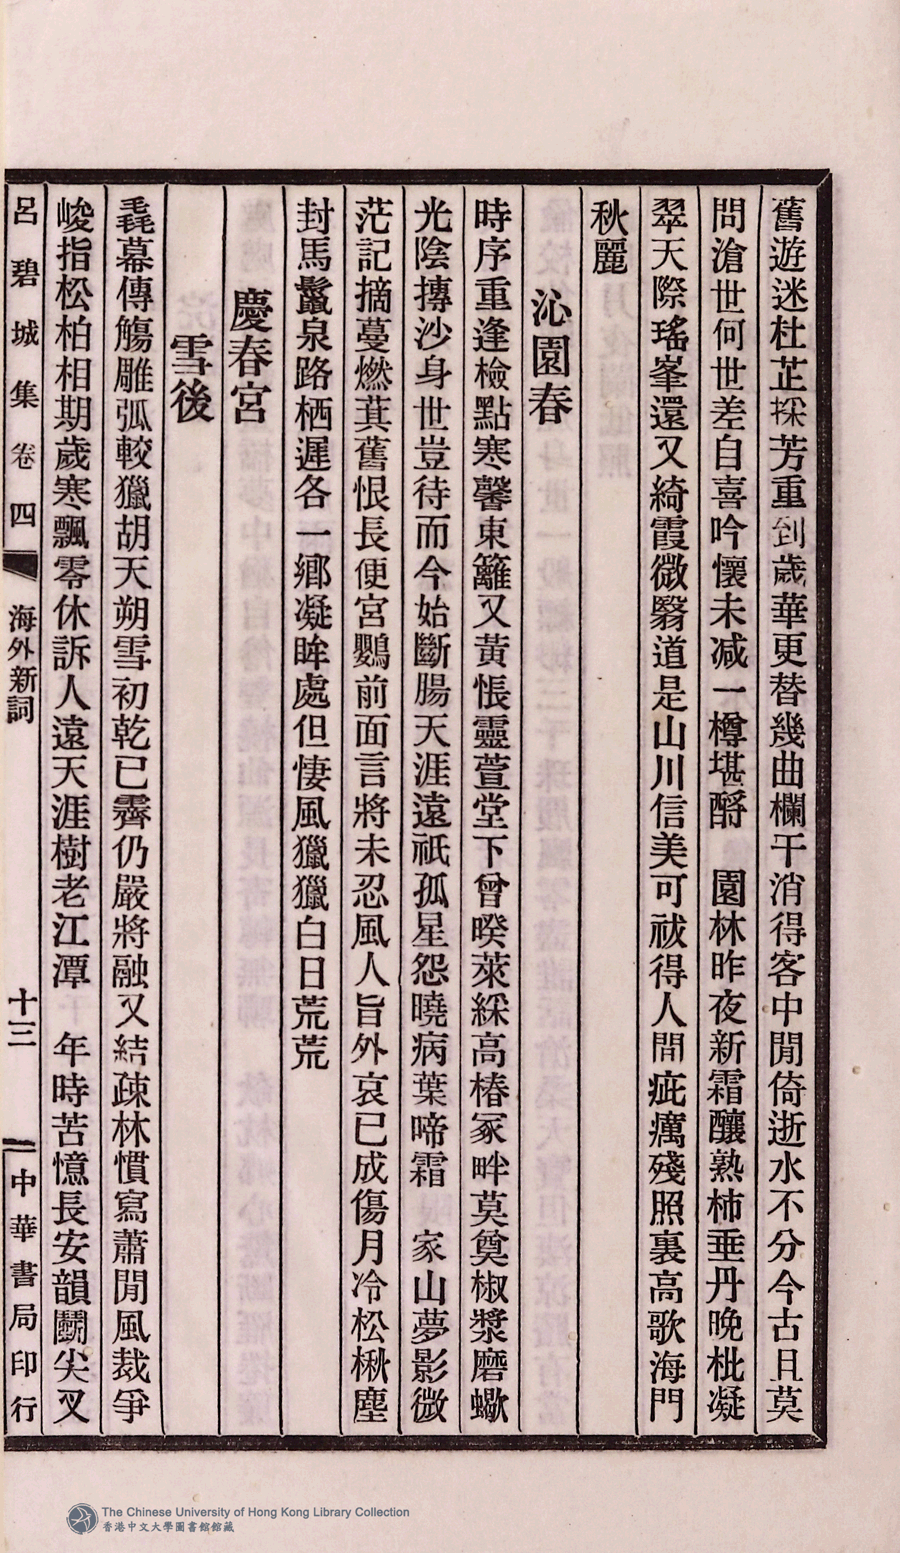 舊遊迷杜芷採芳重到歲華更替幾曲欄干消得客中閒倚逝水不分今古且莫
問滄世何世差自喜吟懷未減一樽堪酹　園林昨夜新霜釀熟柿垂丹晚枇凝
翠天際瑤峯還又綺霞微翳道是山川信美可祓得人間疵癘殘照裏高歌海門
秋麗
沁園春
時序重逢檢點寒馨東籬又黃悵靈萱堂下曾暌萊綵高椿冢畔莫奠椒漿磨蠍
光陰摶沙身世豈待而今始斷腸天涯遠祇孤星怨曉病葉啼霜　家山夢影微
茫記摘蔓燃萁舊恨長便宮鸚前面言將未忍風人旨外哀已成傷月冷松楸塵
封馬鬣泉路栖遲各一鄉凝眸處但悽風獵獵白日荒荒
慶春宮
雪後
毳幕傳觴雕弧較獵胡天朔雪初乾已霽仍嚴將融又結疎林慣寫蕭閒風裁爭
峻指松柏相期歲寒飄零休訴人遠天涯樹老江潭　年時苦憶長安韻鬭尖叉
呂碧城集 卷四 海外新詞 十三 中華書局印行
The Chinese University of Hong Kong Library Collection
香港中文大學圖書館館藏